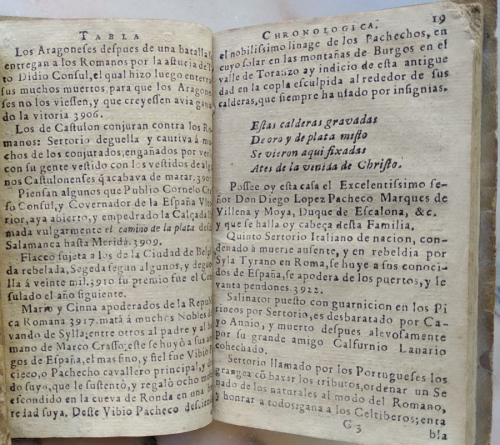 TABLA
Los Aragoneses despues de una batalla se
entregan a los Romanos por la astucia de Ti
to Didio Consul, el qual hizo luego enterrar
sus muchos muertos, para que los Aragone
ses no los viessen, y que creyessen avia gana
do la vitoria 3906.
Los de Castulon conjuran contra los Ro
manos: Sertorio deguella y cautiva à mu
chos de los conjurados, engañados por ver
con su gente vestido con los vestidos de algu
nos Castulonenses q̃ acabava de matar. 390
Piensan algunos que Publio Cornelo Cra
so Consul, y Governador de la España Vlte
rior, aya abierto, y empedrado la Calçada lla
mada vulgarmente el camino de la plata desde
Salamanca hasta Merida. 3909.
Flacco sujeta a los de la Ciudad de Belg
da rebelada, Segeda segun algunos, y degue
lla à veinte mil. 3910 su premio fue el Con
sulado el año siguiente.
Mario y Cinna apoderados de la Repu
ca Romana 3917. matà à muchos Nobles del
vando de Sylla; entre otros al padre y al her
mano de Marco Crasso; este se huyò a sus ami
gos de España, el mas fino, y fiel fue Vibio Pa
cieco, o Pachecho cavallero principal, y cria
do suyo, que le sustentò, y regalò ocho meses
escondido en la cueva de Ronda en una he
redad suya. Deste Vibio Pacheco desciende
CHRONOLOGICA. 19
el nobilissimo linage de los Pachechos, en
cuyo solar en las montañas de Burgos en el
valle de Toranzo ay indicio de esta antigue
dad en la copla esculpida al rededor de sus
calderas, que siempre ha usado por insignias.
Estas calderas gravadas
De oro y de plata misto
Se vieron aqui fixadas
Ates de la venida de Christo.
Possee oy esta casa el Excelentissimo se-
ñor Don Diego Lopez Pacheco Marques de
Villena y Moya, Duque de Escalona, &c.
y que se halla oy cabeça desta Familia.
Quinto Sertorio Italiano de nacion, con-
denado à muerte ausente, y en rebeldia por
Syla Tyrano en Roma, se huye a sus conoci-
dos de España, se apodera de los puertos, y le
vanta pendones. 3922.
Salinator puesto en guarnicion en los Pi
rineos por Sertorio, es desbaratado por Ca-
yo Annio, y muerto despues alevosamente
por su grande amigo Calfurnio Lanario
cohechado.
Sertorio llamado por los Portugueses los
grangea cõ baxar los tributos, ordenar un Se
nado de los naturales al modo del Romano,
y honrar a todos; gana a los Celtiberos; enta
G 3 bla